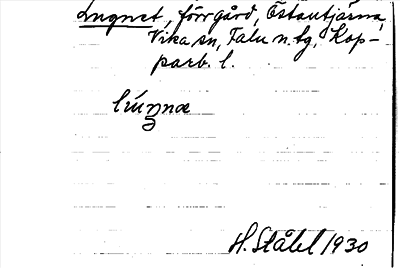 Lugnet, förrgård, Östantjärna,
Vika sn, Falu n. tg, Kop-
parb. l.
H. Ståhl 1930